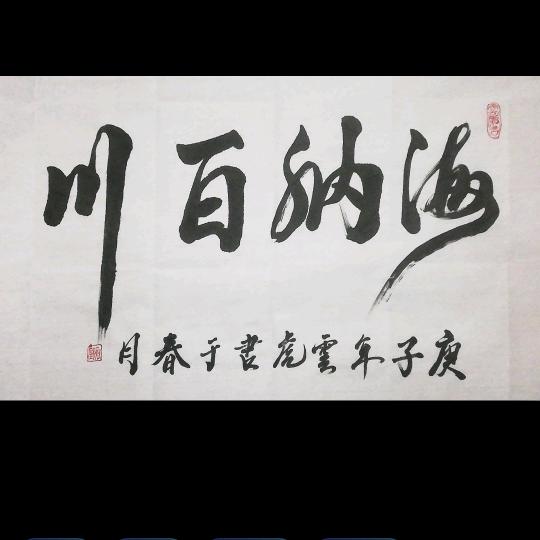 海納百川
庚子年雲虎書于春月